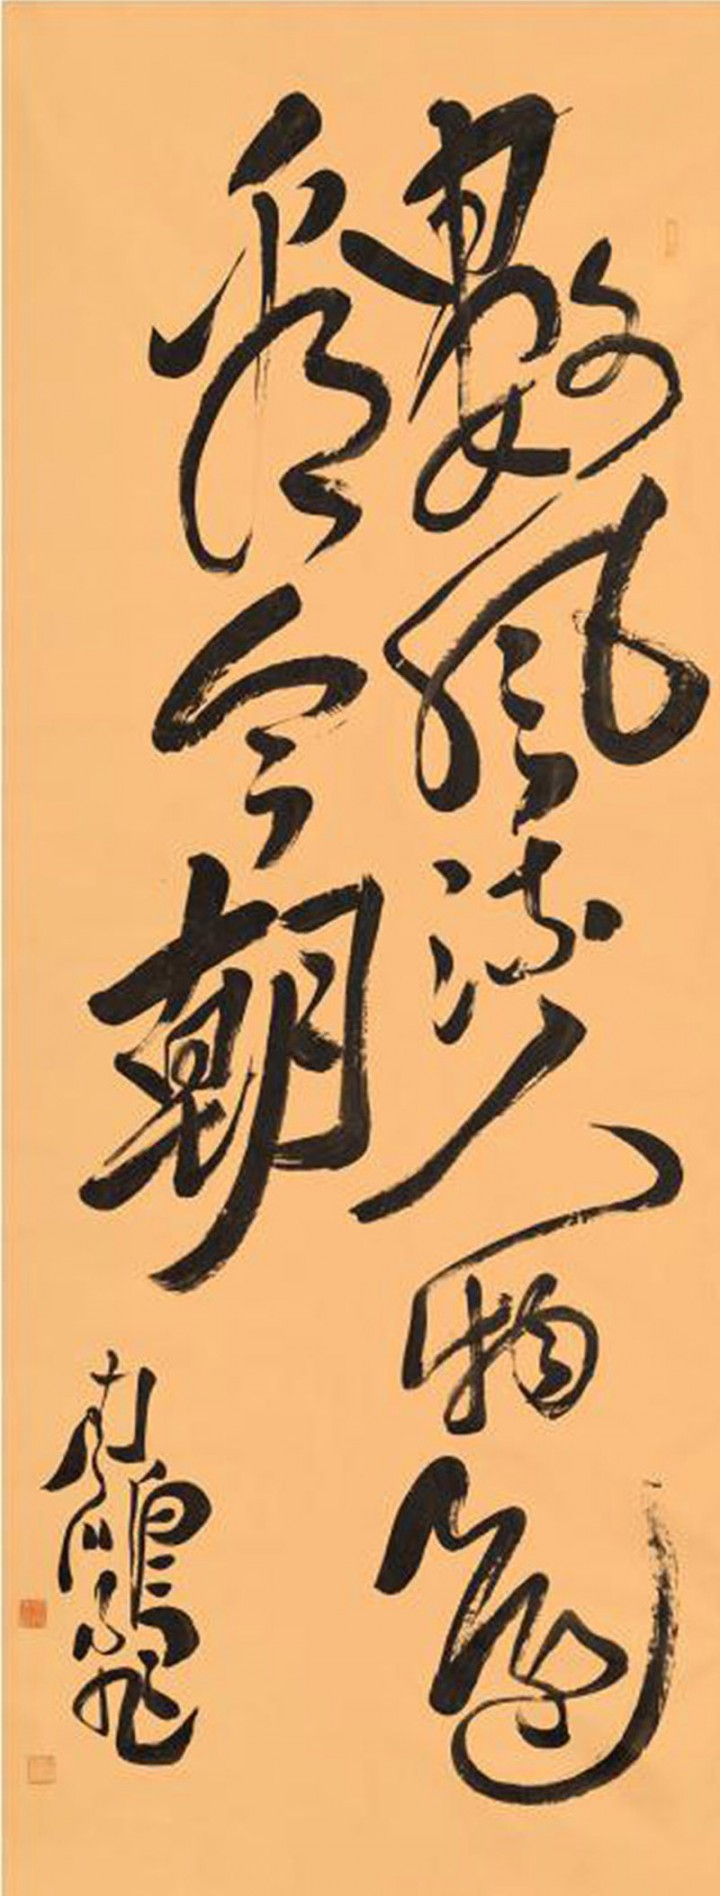 數風流人物還
看今朝
南